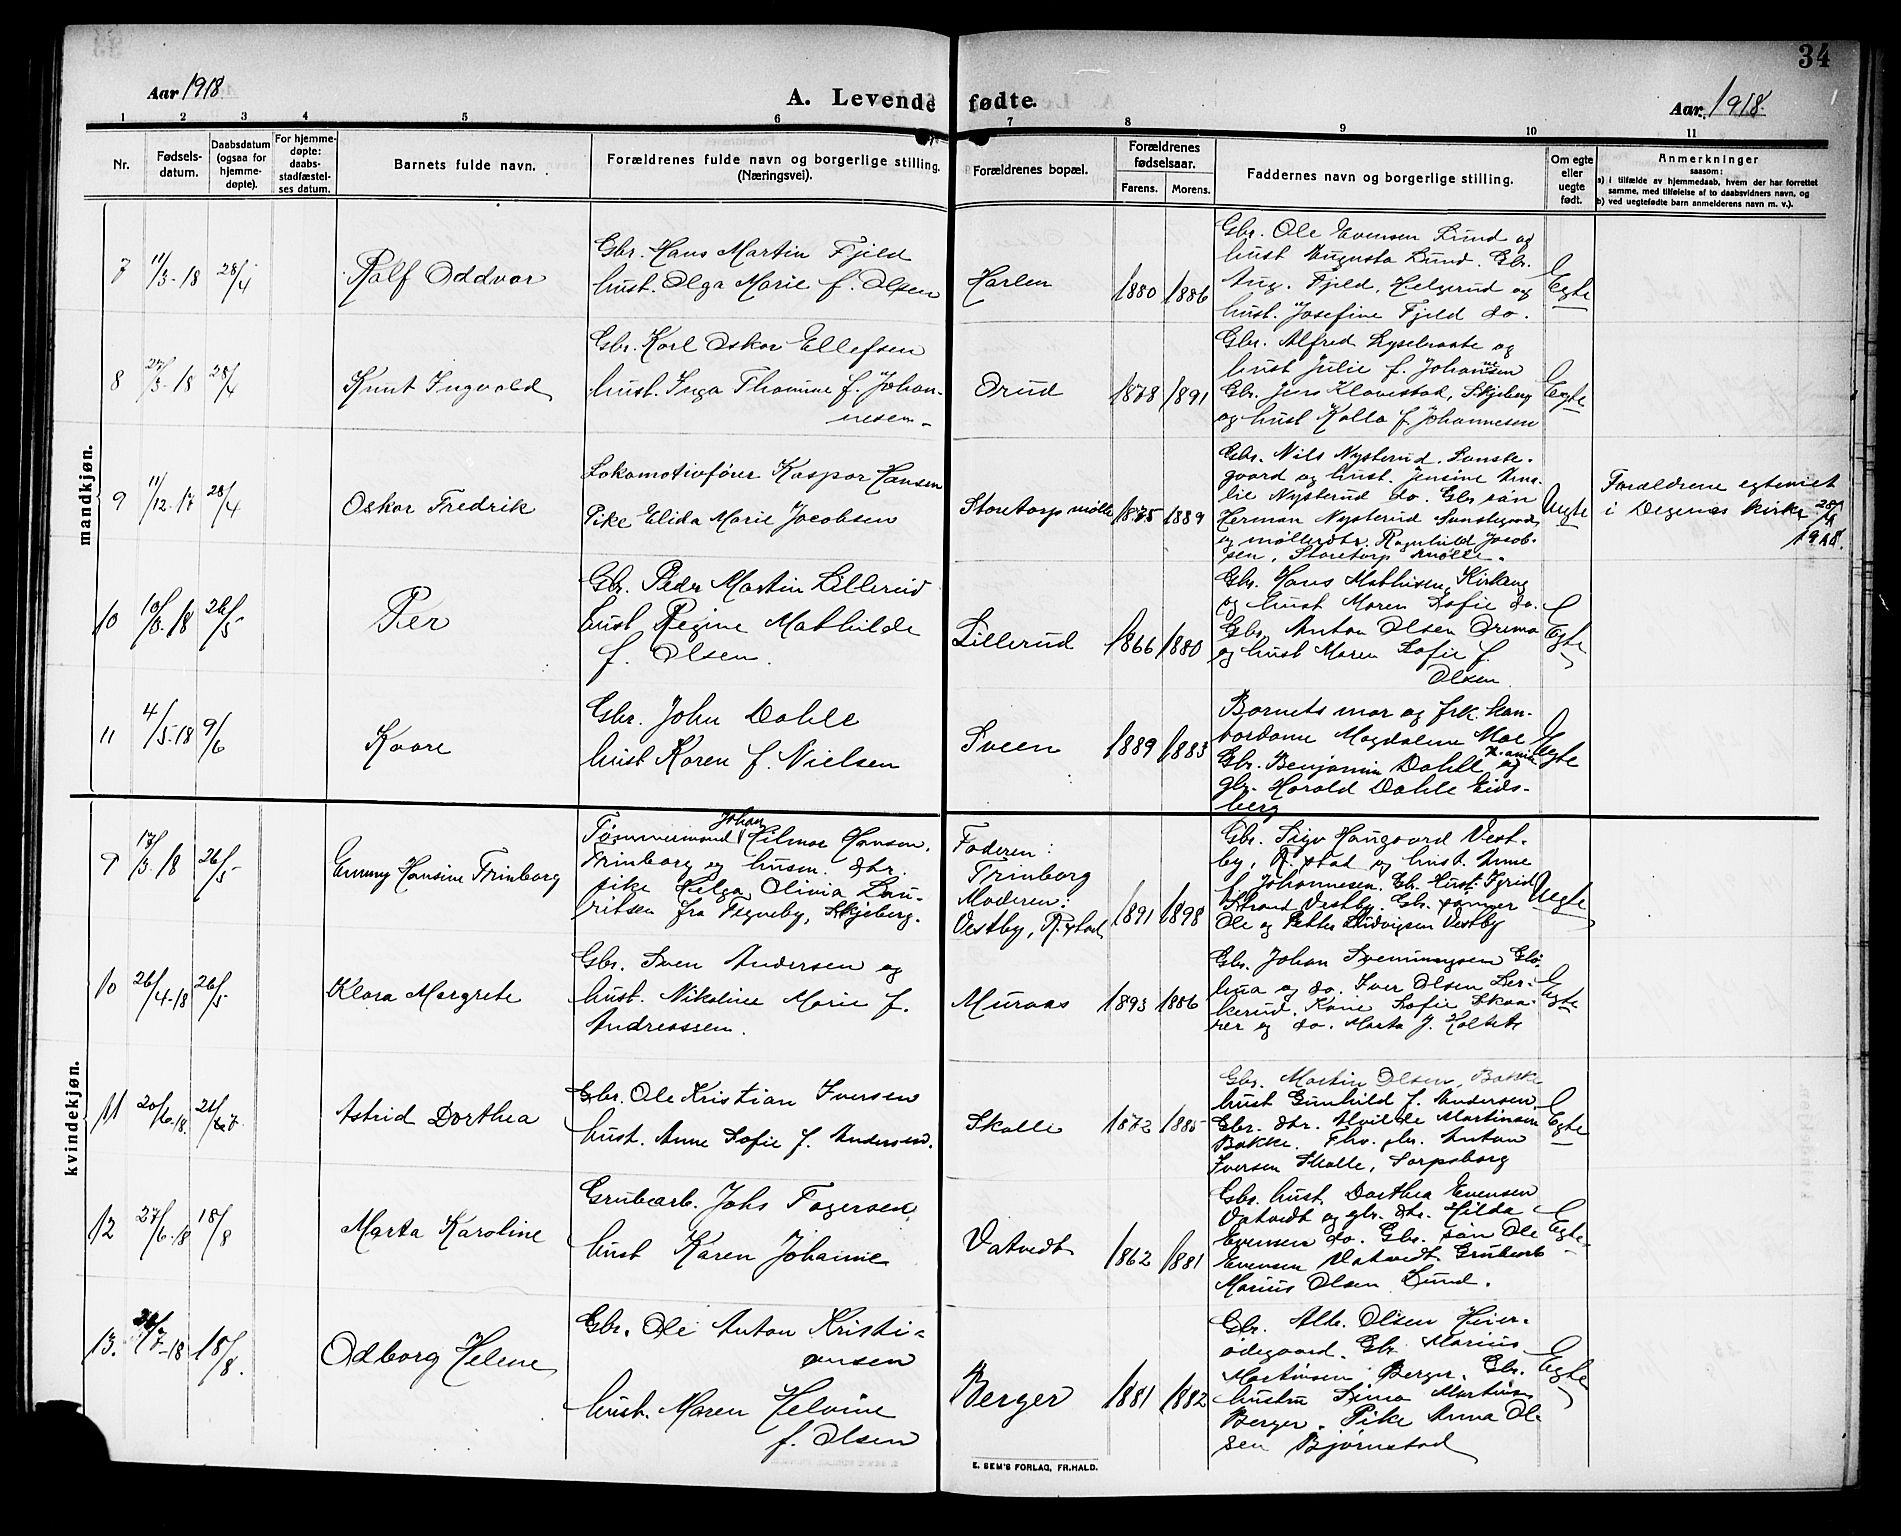 34
Aar 1918.
A. Levende fødte.
Aar 1918.
1 2 3 4 5 6 7 8 9 10 11
Nr.
Fødsels-
datum.
Daabsdatum
(ogsaa for
hjemme-
døpte).
For hjemme-
døpte:
daabs-
stadfæstel-
ses datum.
Barnets fulde navn.
Forældrenes fulde navn og borgerlige stilling.
(Næringsvei).
Forældrenes bopæl.
Forældrenes
fødselsaar.
Farens. Morens.
Faddernes navn og borgerlige stilling.
Om egte
eller
uegte
født.
Anmerkninger
saasom:
a) i tilfælde av hjemmedaab, hvem der har forrettet
samme, med tilføielse af to daabsvidners navn, og
b) ved uegtefødte barn anmelderens navn m. v.).
mandkjøn.
7
11/3-18
28/4
Ralf Oddvar
Gbr. Hans Martin Fjeld
hust. Olga Marie f. Olsen
Harlem
1880 1886
Gbr. Ole Evensen Lund og
hust Augusta Lund. Gbr.
Aug. Fjeld, Helgerud og
hust. Josefine Fjeld do.
Egte
8
27/3-18
28/4
Knut Ingvald
Gbr. Karl Oskar Ellefsen
hust. Inga Thomine f. Johan-
nesen
Orud
1878 1891
Gbr. Alfred og
hust Julie f. Johannesen
Gbr. Jens Klavestad, Skjeberg
og hust Kalla f Johannesen
Egte
9
11/12-17
28/4
Oskar Fredrik
Lokomotivfører Kaspar Hansen
Pike Elida Marie Jacobsen
Storetorp mølle
1875 1889
Gbr. Nils Nysterud. Sunste-
gaard og hust. Jensine Ama-
lie Nysterud do. Gbr søn
Herman Nysterud Sunstegaard
og møllerdtr. Ragnhild Jacob-
sen, Storetorp mølle.
Uegte
Forældrene egteviet
i Degernes kirke 28/4
1918.
10
10/3-18
26/5
Per
Gbr. Peder Martin Lillerud
hust Regine Mathilde
f. Olsen.
Lillerud
1866 1880
Gbr. Hans Mathisen, Kirkeng
og hust Maren Sofie do.
Gbr. Anton Olsen Orema
og hust Maren Sofie f.
Olsen
Egte
11
4/5-18
9/6
Kaare
Gbr. John Dahle
hust Karen f. Nielsen
Sveen
1889 1883
Barnets mor og frk. kan-
tordame Magdalene Moe
Gbr. Benjamin Dahle og
gbr. Harald Dahle Eids-
berg
kvindekjøn.
9
17/3-18
26/5
Emmy Hansine Trinborg
Johan
Tømmermand Hilmar Hansen,
Trinborg og husm. dtr.
pike Helga Olivia Lau-
ritsen fra Tegneby, Skjeberg.
Faderen:
Trinborg
Moderen:
Vestby, R.stad
1891 1898
Gbr. Sigv Haugaard Vest-
by, R.stad og hust. Anne
f. Johannesen. Gb. Hust:
Strand Vestby. Gbr. sønner
Ole og Petter Ludvigsen Vestby
Uegte
10
26/4-18
26/5
Klara Margrete
Gbr. Sven Andersen og
hust. Nikoline Marie f.
Andreassen.
Muraas
1893 1886
Gbr. Johan Svenningsen
og do. Iver Olsen Ler-
kerud. Karie Sofie Skaa-
rer og do. Marta J. Holtet
Egte
11
20/6-18
21/7
Astrid Dorthea
Gbr. Ole Kristian Iversen
hust. Anne Sofie f. Andersen.
Skolle
1872 1885
Gbr. Martin Olsen, Bakke
hust Gunhild f. Andersen,
Gbr. dtr. Alvilde Martinsen
Bakke. Fhv. gbr. Anton
Iversen Skolle, Sarpsborg
Egte
12
27/6-18
18/8
Marta Karoline
Grubearb. Johs Fagersen,
hust Karen Johanne
Vatvedt
1862 1881
Gbr. hust. Dorthea Evensen
Vatvedt og gbr. dtr. Hilda
Evensen do. Gbr. søn Ole
Evensen Vatvedt Grubearb
Marius Olsen Lund.
Egte
13.
/7-18
18/8.
Odborg Helene
Gbr. Ole Anton Kristi-
ansen
hust. Maren Helvine
f. Olsen
Berger
1881 1882
Gbr. Alb. Olsen Heier-
ødegaard. Gbr Marius
Martinsen Berger. Gbr.
hustru Sina Martins
Berger. Pike Anna Ol-
sen Bjørnstad
Egte
E. SEM'S FORLAG, FR.HALD.